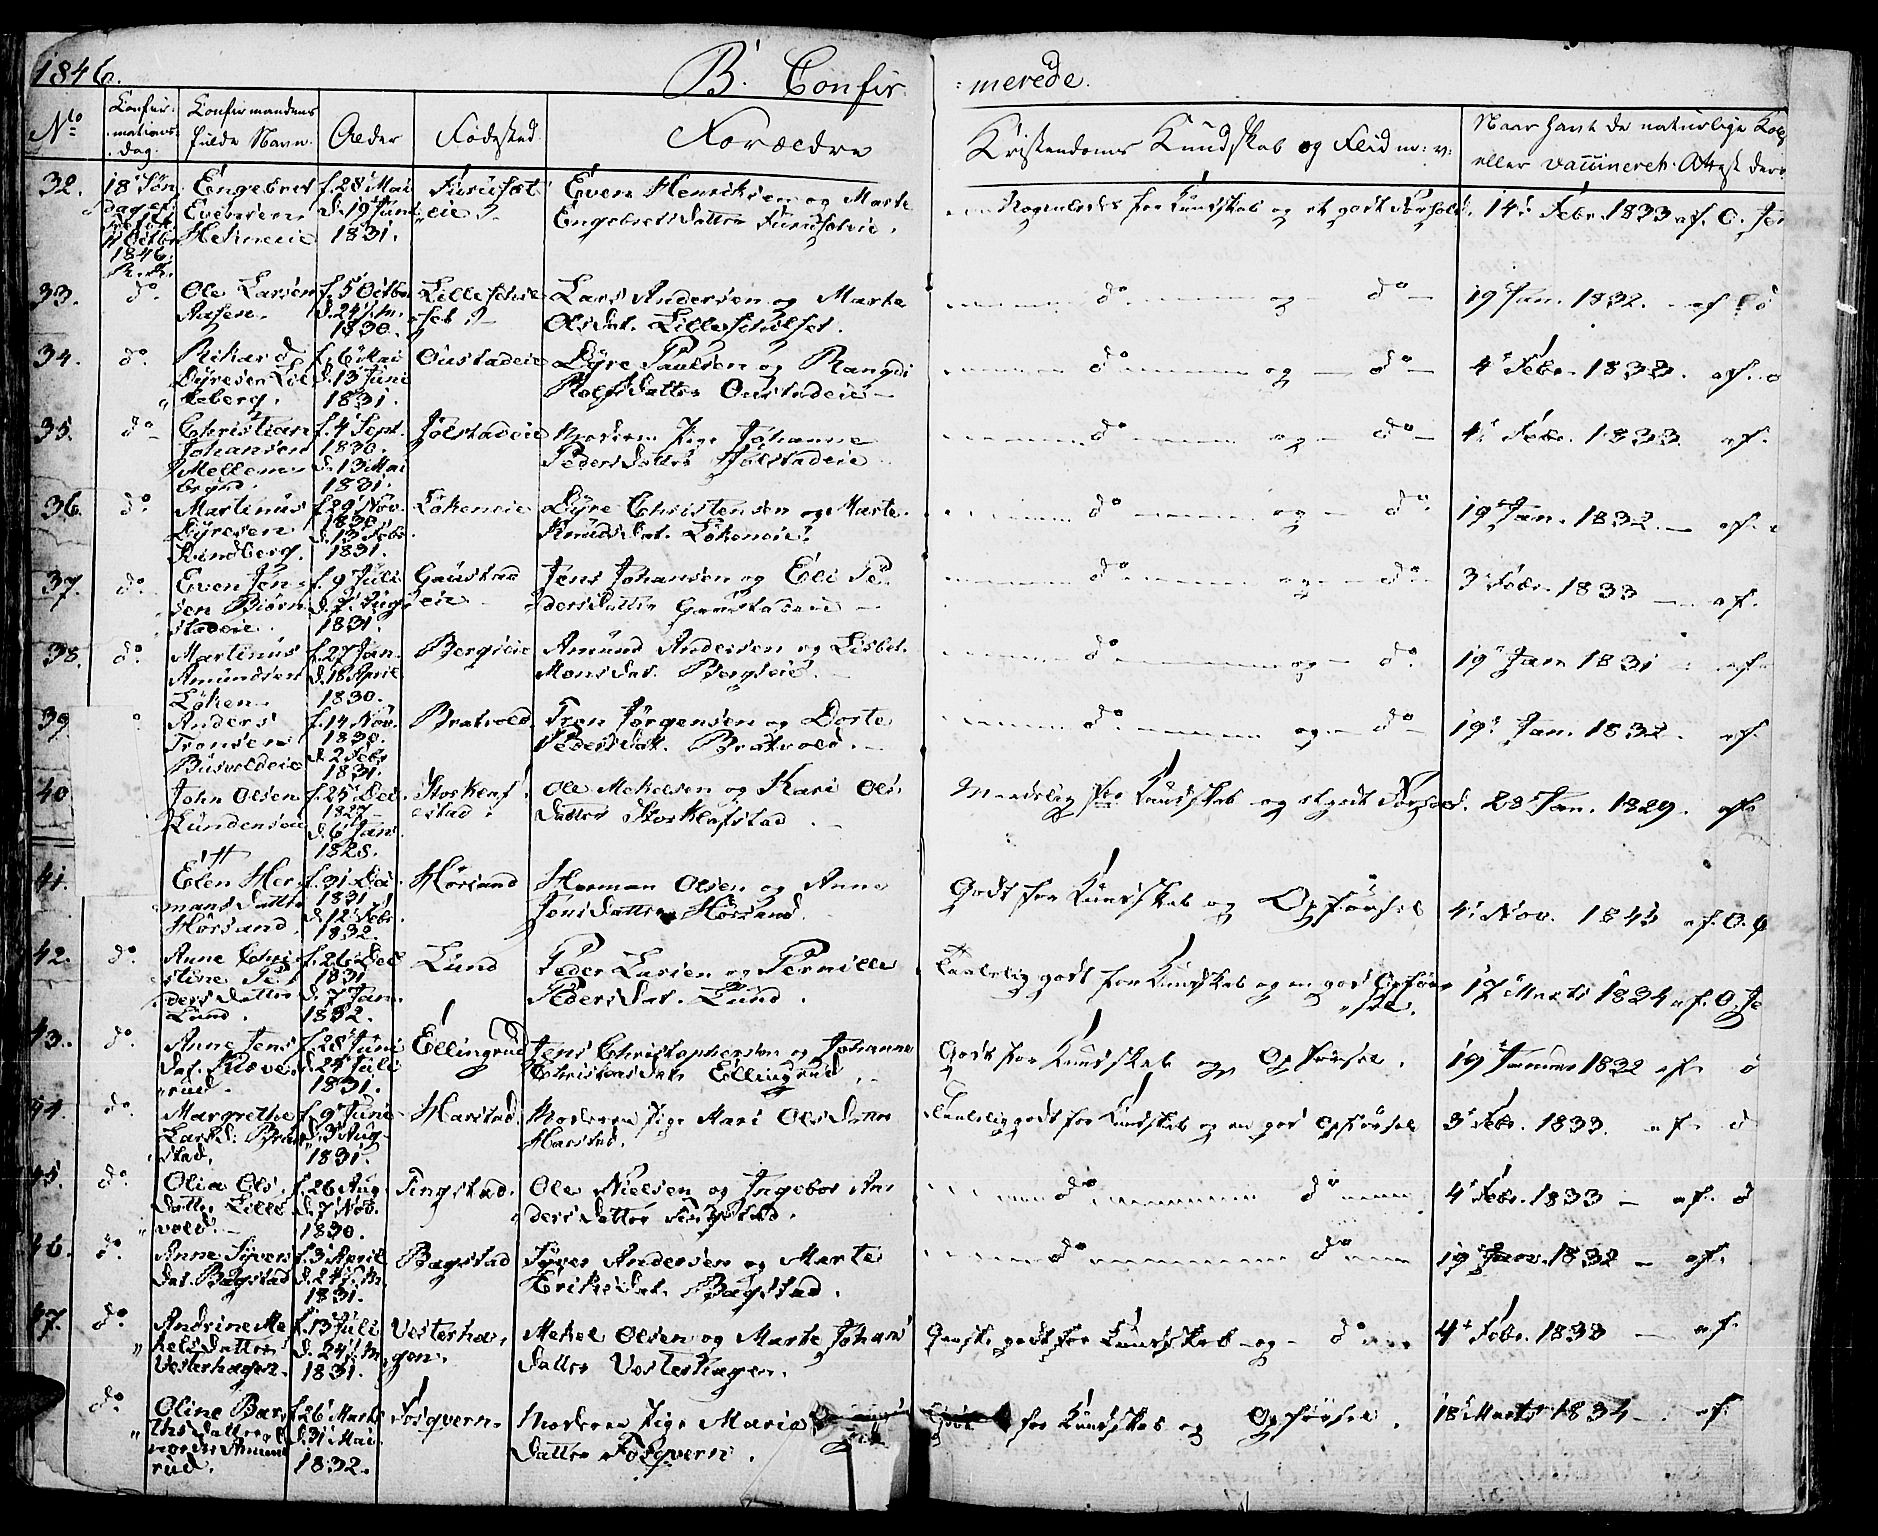 1846.
B. Confir- -merede.
No
Confir-
-mations-
dag.
Confirmandens
fulde Navn.
Alder
Födested
Forældre
Kristendoms Kundskab og Flid m: v:
Naar havt de naturlige Kop
eller vaccineret. Attest derv
32.
18 Søn
11 Octbr
1846.
Engebret
Evensen
f. 28 Mai
d. 19 Juni
1831.
Furuset
eie
Even Henriksen og Marte
Engebretsdatter Furuseteie.
Nogenledes for Kundskab og et godt Forhold.
14. Febr. 1833 af O. Jen
33.
do.
Ole Larsen
Aasen.
f. 5 Octbr
d. 24 s.m.
1830.
Lars Andersen og Marte
Olsdat.
do og do
19 Jan. 1832. af
34.
do.
Rikard
Dyresen
f. 6 Mai
d. 13 Juni
1831.
Oustadeie
Dyre Paulsen og Rangdi
Rolfsdatter Oustadeie
do og do
4 Febr. 1833. af
35.
do
Christian
Johansen
Mellem-
f. 4 Sept.
1830.
d. 13 Mai
1831.
Jölstadeie
Moderen Pige Johanne
Pedersdatter Jölstadeie
do og do
4. Febr. 1833 af
36.
do
Martinus
Dyresen
Kindberg.
f. 29 Nov.
1830
d. 13 Febr.
1831.
Lökeneie
Dyre Christensen og Marte
Knudsdat. Lökeneie.
do og do
19 Jan. 1832. af
37.
do.
Even Jen-
sen Biörn-
stadeie.
f. 9 Juli
d. 7. Aug
1831.
Gaustad
eie
Jens Johansen og Eli Pe-
dersdatter Gaustadeie
do og do
3 Febr. 1833 af.
38.
do.
Martinus
Amundsen
Löken
f. 27 Jan.
d. 18 April
1830.
Bergseie
Amund Andersen og Lisbet
Monsdat. Bergseie.
do og do.
19 Jan 1831 af
39
Anders
Tronsen
f. 14 Nov.
1830.
d. 2 Febr
1831.
Bratvold.
Tron Jörgensen og Dorte
Pedersdat. Bratvold.
do og do
19. Jan. 1832. af
40
John Olsen
f. 25 Dec.
1827
d. 6 Jan.
1828.
Ole Mekelsen og Kari Ols-
datter
Maadelig for Kundskab og et godt Forhold.
28 Jan. 1829. af
41.
Elen Her-
mansdatter
Hörsand
f. 31 Dec.
1831
d. 12 Febr.
1832.
Hörsand
Herman Olsen og Anne
Jensdatter Hörsand.
Godt for Kundskab og Opførsel
4. Nov. 1845 af O.
42.
do.
Anne Chri-
stine Pe-
dersdatter
Lund.
f. 26 Dec
1831
d. 7 Jan.
1832.
Lund
Peder Larsen og Pernille
Pedersdat. Lund.
Taalelig godt for Kundskab og en god Opfør-
sel.
17 Marts 1834 af O. Je
43.
do.
Anne Jens
dat. Kløve-
rud.
f. 28 Juni
d. 24 Juli
1831.
Ellingrud
Jens Christophersen og Johanne
Christensdatr Ellingrud.
Godt for Kundskab og Opførsel.
19 Januar 1832 af
44.
do.
Margrethe
Larsd.
stad.
f. 9 Juni
d. 3 Aug
1831.
Harstad
Moderen Pige Mari Olsdatter
Harstad.
Taalelig godt for Kundskab og en god Opførsel
3 Febr. 1833. af
45.
do
Olia Ols-
datter Lille-
vold.
f. 26 Aug
d. 7 Nov.
1830.
Tingstad.
Ole Nielsen og Ingebor An-
dersdatter Tingstad.
do do
4 Febr. 1833 af.
46.
do.
Anne Syvers
dat. Bagstad
f. 3 April
d. 24 s.m.
1831.
Bagstad
Syver Andersen og Marte
Eriksdat. Bagstad.
do do
19 Jan. 1832 af.
47.
do.
Andrine Me-
kelsdatter
Vesterhagen.
f. 13 Juli
d. 24 s.m.
1831.
Vesterha-
gen.
Mekel Olsen og Marte Johans
datter Vesterhagen.
Ganske godt for Kundskab og do
4 Febr. 1833 af.
do
Oline
rud.
f. 26 Marts
d. 31 Mai
1832.
Fosqvern
Moderen Pige Maria
datter Fosqvern.
Godt for Kundskab og Opførsel.
18 Marts 1834 af.